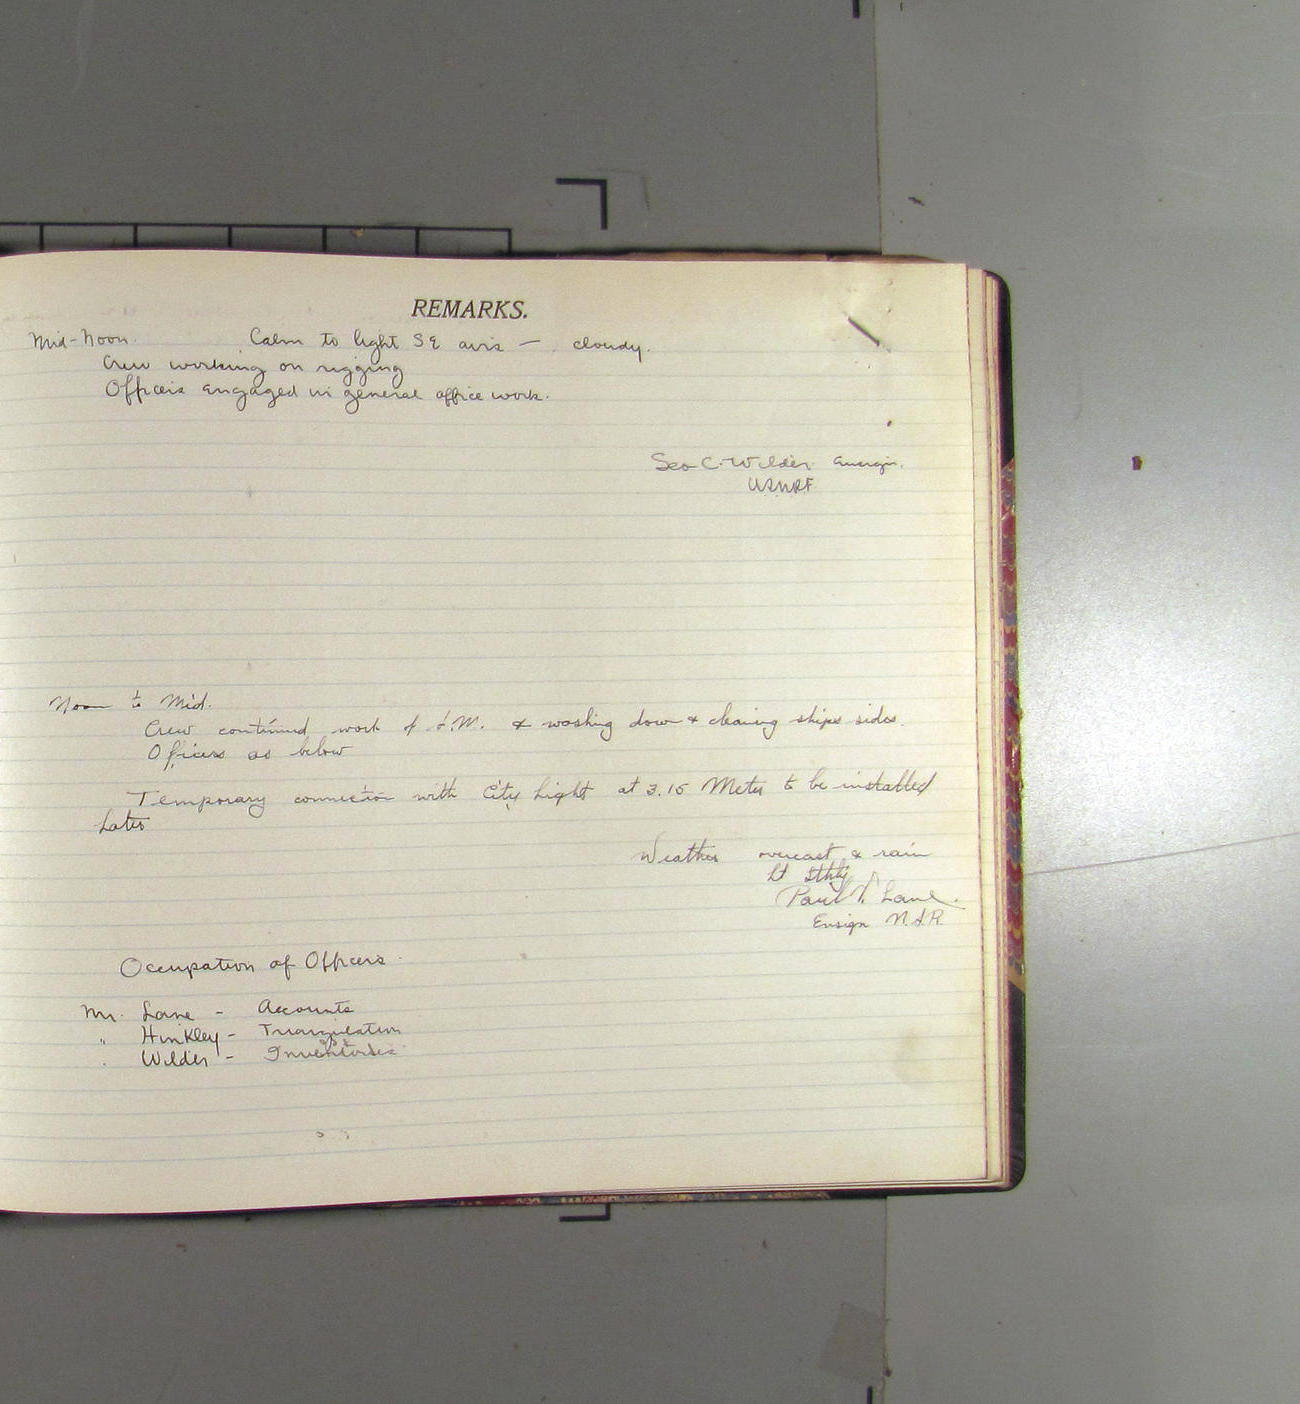 REMARKS.
Mid-Noon. Calm to light SE airs — cloudy.
Crew working on rigging
Officers engaged in general office work.
Geo C. Wilder Ensign.
USNRF
Noon to Mid.
Crew continued work of A.M. & washing down & cleaning ships sides.
Officers as below
Temporary connection with City Light at 3.15 Meter to be installed
Later
Weather overcast & rain
Lt Sthly
Paul Lane.
Ensign N.A.R.
Occupation of Officers.
Mr. Lane - Accounts
" Hinkley - Triangulation
" Wilder - Inventories